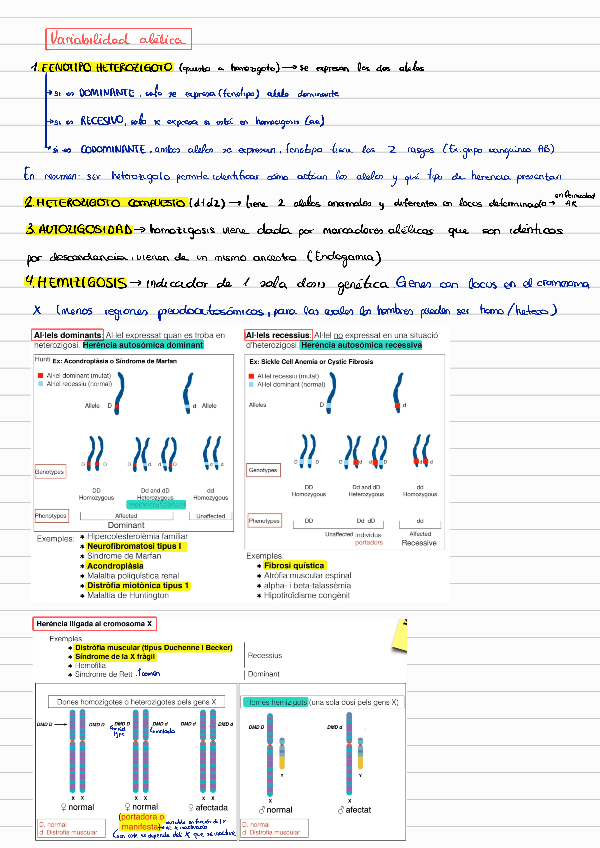 Variabilidad alélica
1. FENOTIPO HETEROZIGOTO (puesto a homozigoto) → se expresan los dos alelos
si es DOMINANTE, solo se expresa (fenotipo) alelo dominante
si es RECESIVO, solo se expresa si está en homocigosis (aa)
si es CODOMINANTE, ambos alelos se expresan, fenotipo tiene los 2 rasgos (Ex: grupo sanguíneo AB)
En resumen: ser heterozigoto permite identificar cómo actúan los alelos y qué tipo de herencia presentan
2. HETEROZIGOTO COMPUESTO (d1d2) → tiene 2 alelos anormales y diferentes en locus determinado → enfermedad AR
3. AUTOZIGOSIDAD → homozigosis viene dada por marcadores alélicos que son idénticos
por descendencia, vienen de un mismo ancestro (Endogamia)
4. HEMIZIGOSIS → indicador de 1 sola dosis genética Genes con locus en el cromosoma
X (menos regiones pseudoautosómicas, para las cuales los hombres pueden ser homo/hetero)
Al·lels dominants: Al·lel expressat quan es troba en
heterozigosi. Herència autosómica dominant
Hunti Ex: Acondroplàsia o Síndrome de Marfan
Al·lel dominant (mutat)
Al·lel recessiu (normal)
Allele D
d Allele
D D D d D d d d
Genotypes
DD Homozygous
Dd and dD Heterozygous
dd Homozygous
Phenotypes
Affected
Unaffected
Dominant
Exemples:
* Hipercolesterolèmia familiar
* Neurofibromatosi tipus I
* Síndrome de Marfan
* Acondroplàsia
* Malaltia poliquística renal
* Distròfia miotònica tipus 1
* Malaltia de Huntington
Al·lels recessius: Al·lel no expressat en una situació
d'heterozigosi. Herència autosómica recessiva
Ex: Sickle Cell Anemia or Cystic Fibrosis
Al·lel recessiu (mutat)
Al·lel dominant (normal)
Alleles D
d
Genotypes
DD Homozygous
Dd and dD Heterozygous
dd Homozygous
Phenotypes
DD
Dd dD
dd
Unaffected individus portadors
Affected
Recessive
Exemples:
* Fibrosi quística
* Atròfia muscular espinal
* alpha- i beta-talassèmia
* Hipotiroïdisme congènit
Herència lligada al cromosoma X
Exemples:
* Distròfia muscular (tipus Duchenne i Becker)
* Síndrome de la X fràgil
* Hemofília
* Síndrome de Rett
Recessius
Dominant
Dones homozigotes o heterozigotes pels gens X
DMD D
DMD D DMD d
mutada
DMD d DMD d
X X
X X
X X
♀ normal
♀ normal
(portadora o
manifesta)
♀ afectada
D. normal
d. Distròfia muscular
Homes hemizigots (una sola dosi pels gens X)
DMD D
DMD d
X Y
X Y
♂ normal
♂ afectat
D. normal
d. Distròfia muscular